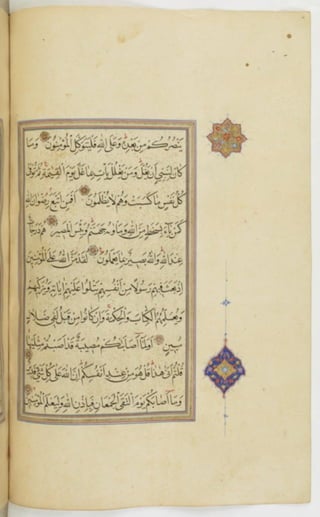 ينصركم من بعده وعلى الله فليتوكل المؤمنون وما
كان لنبي أن يغل ومن يغلل يأت بما غل يوم القيمة ثم توفى
كل نفس ما كسبت وهم لا يظلمون أفمن اتبع رضوان الله
كمن باء بسخط من الله ومأويه جهنم وبئس المصير هم درجات
عند الله والله بصير بما يعملون لقد من الله على المؤمنين
إذ بعث فيهم رسولا من أنفسهم يتلوا عليهم آياته ويزكيهم
ويعلمهم الكتاب والحكمة وإن كانوا من قبل لفي ضلال
مبين أولما أصابتكم مصيبة قد أصبتم مثليها
قلتم أنى هذا قل هو من عند أنفسكم إن الله على كل شيء قدير
وما أصابكم يوم التقى الجمعان فبإذن الله وليعلم المؤمنين